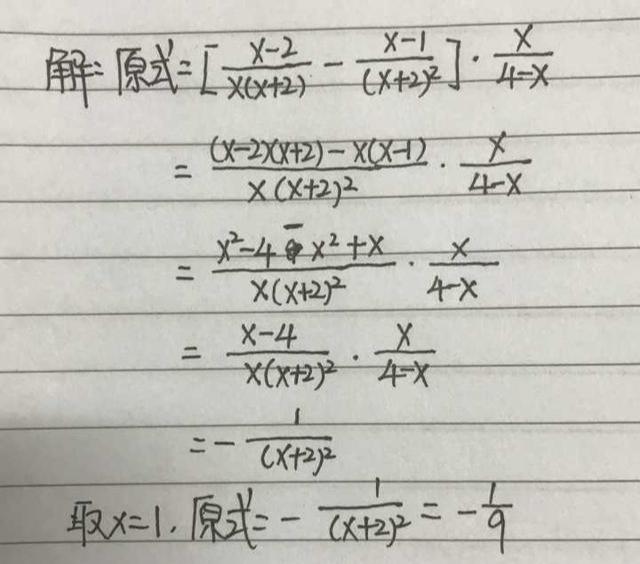 解:原式=[\frac{x-2}{x(x+2)} - \frac{x-1}{(x+2)^2}]·\frac{x}{4-x}
=\frac{(x-2)(x+2)-x(x-1)}{x(x+2)^2}·\frac{x}{4-x}
=\frac{x^2-4-x^2+x}{x(x+2)^2}·\frac{x}{4-x}
=\frac{x-4}{x(x+2)^2}·\frac{x}{4-x}
=-\frac{1}{(x+2)^2}
取x=1,原式=-\frac{1}{(x+2)^2}=-\frac{1}{9}